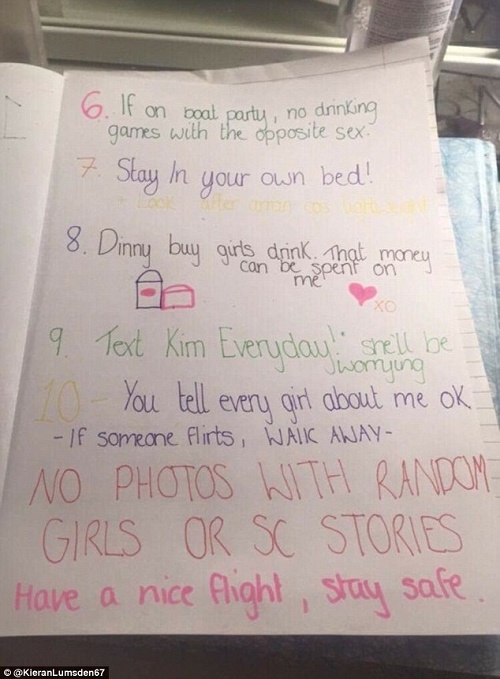 6. If on boat party, no drinking
games with the opposite sex.
7. Stay In your own bed!
* Look after
8. Dinny buy girls drink. That money
can be spent on
me
XO
9. Text Kim Everyday!" she'll be
worrying
10- You tell every girl about me ok
- If someone flirts, WALK AWAY-
NO PHOTOS WITH RANDOM
GIRLS OR SC STORIES
Have a nice flight, stay safe.
© @KieranLumsden67